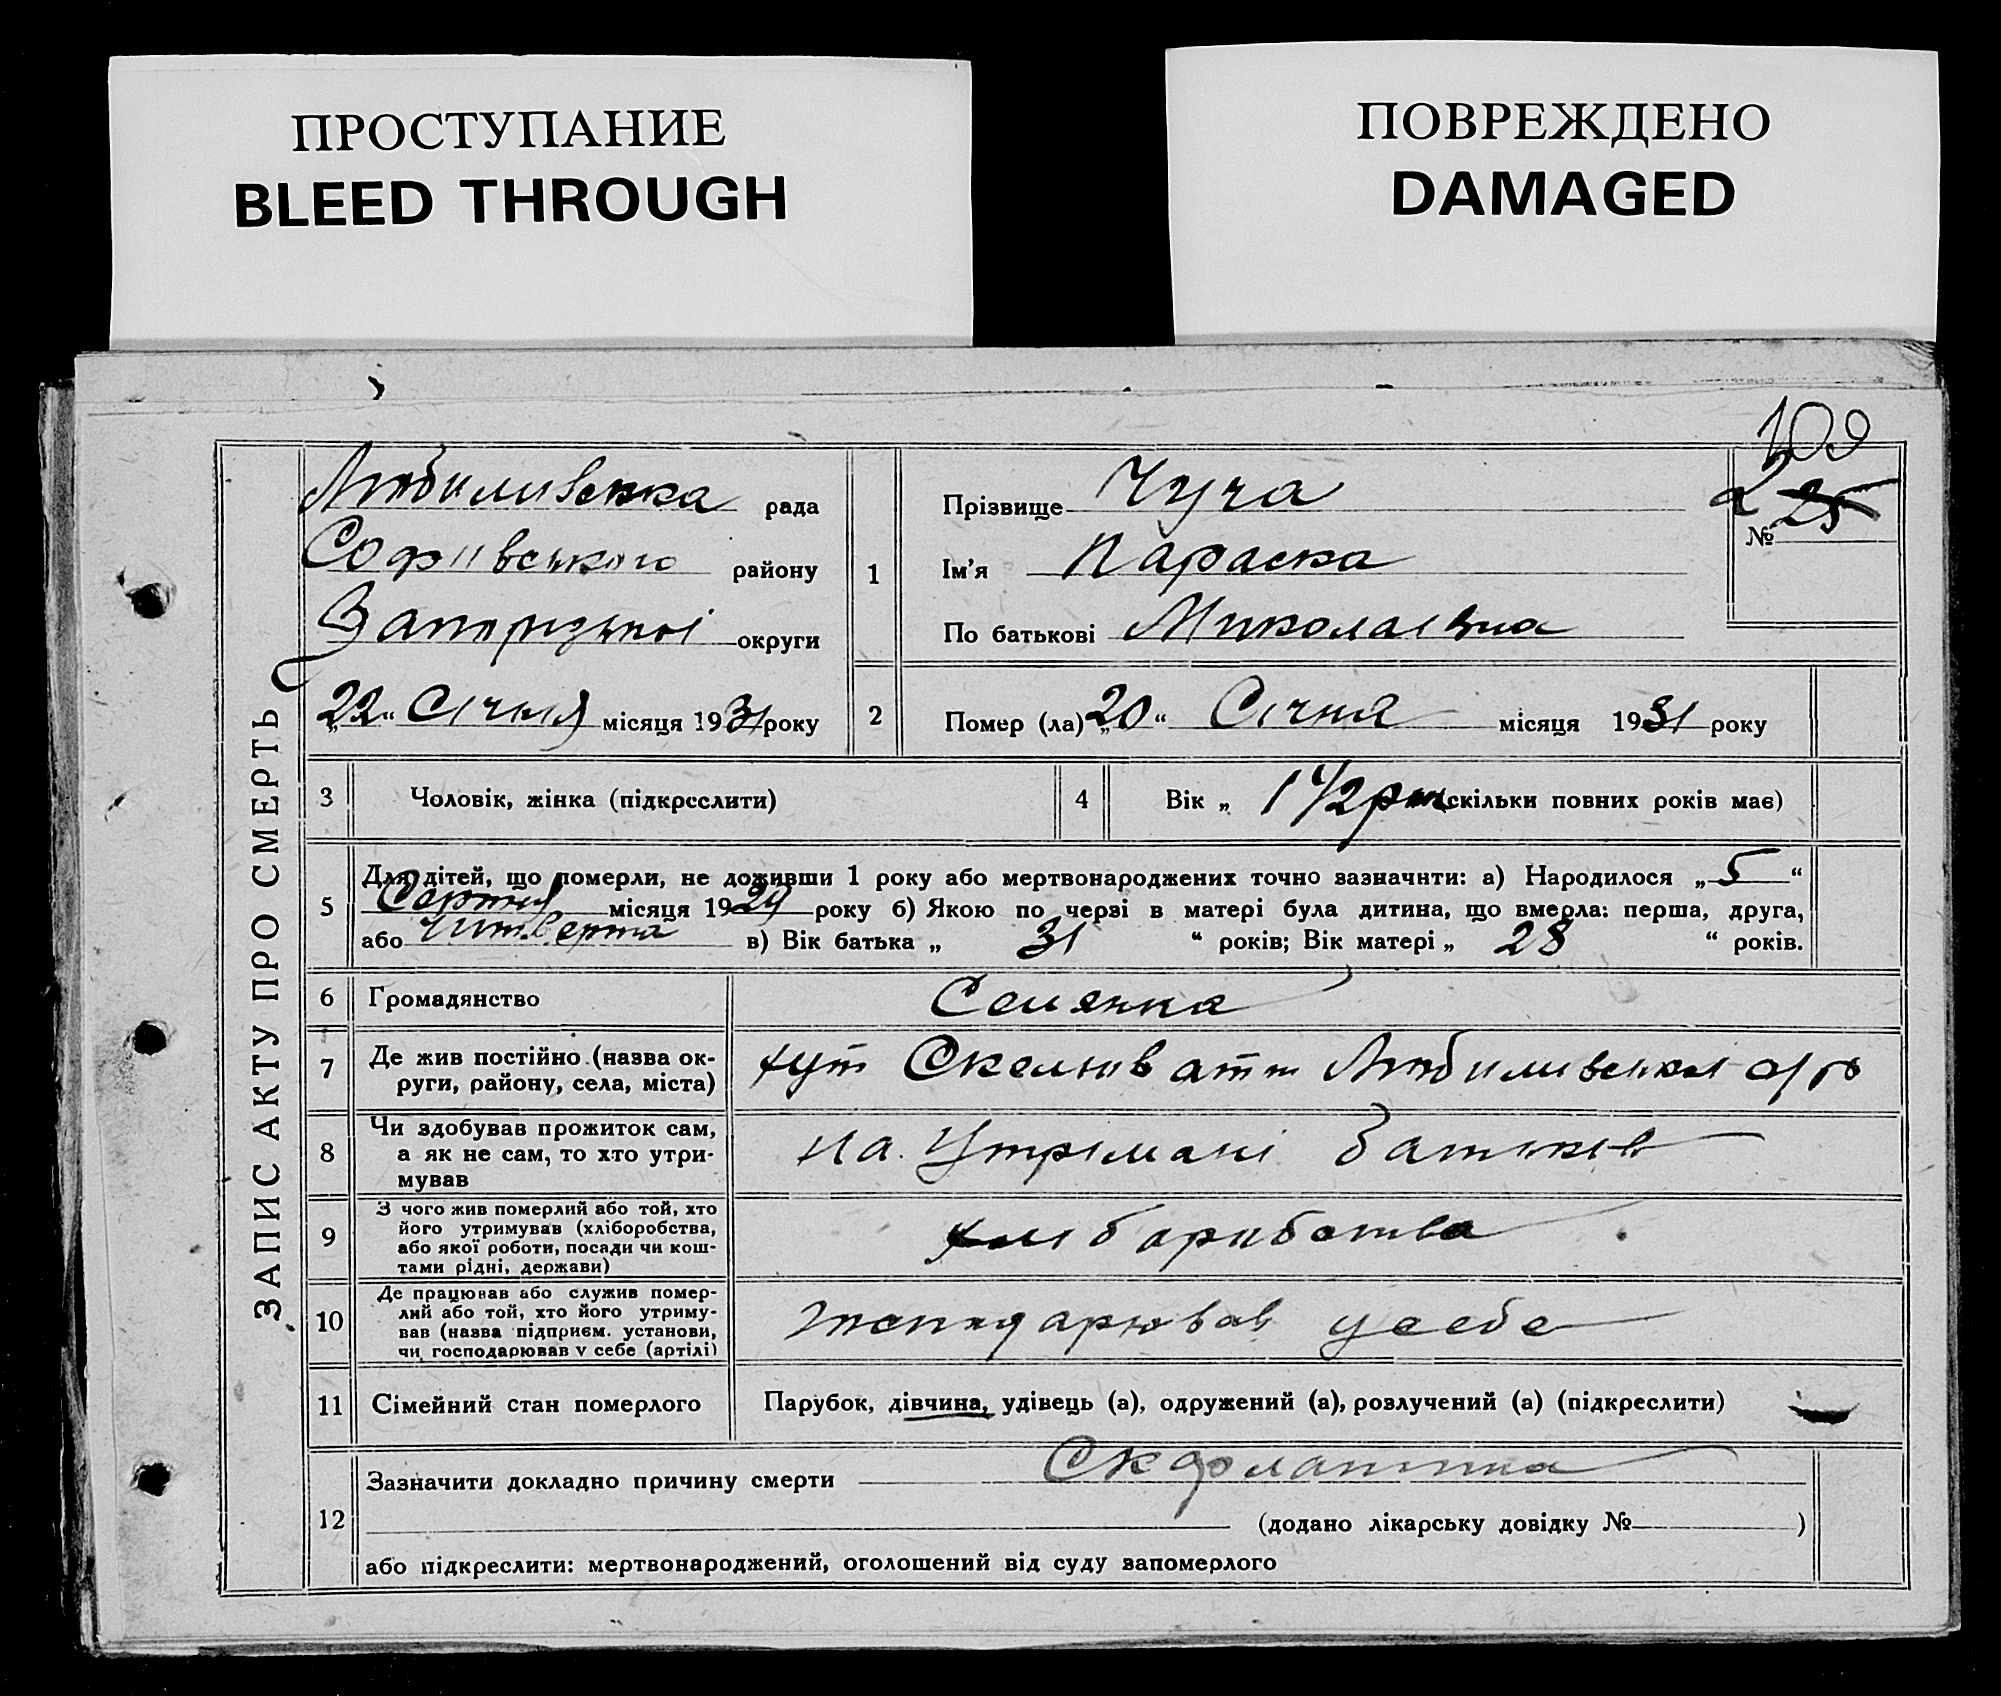 ПРОСТУПАНИЕ
BLEED THROUGH
ПОВРЕЖДЕНО
DAMAGED
ЗАПИС АКТУ ПРО СМЕРТЬ
100
2 25
№
Любимивська рада
Софіівського району
Запорізької округи
„22“ Січня місяця 1931 року
1
Прізвище Чуча
Ім'я Параска
По батькові Миколаівна
2
Помер (ла) „20“ Січня місяця 1931 року
3 Чоловік, жінка (підкреслити)
4 Вік „ 1 1/2 рок (скільки повних років має)
5 Для дітей, що померли, не доживши 1 року або мертвонароджених точно зазначити: а) Народилося „5“
Серпня місяця 1929 року б) Якою по черзі в матері була дитина, що вмерла: перша, друга,
або читверта в) Вік батька „ 31 “ років; Вік матері „ 28 “ років.
6 Громадянство Селянка
7 Де жив постійно (назва ок-
руги, району, села, міста)
хут Скелюватк Любимивськоі с/р
8 Чи здобував прожиток сам,
а як не сам, то хто утри-
мував
на Утримані Батьків
9 З чого жив померлий або той, хто
його утримував (хліборобства,
або якої роботи, посади чи кош-
тами рідні, держави)
хліборобства
10 Де працював або служив помер-
лий або той, хто його утриму-
вав (назва підприєм. установи,
чи господарював у себе (артілі)
господарював усебе
11 Сімейний стан померлого Парубок, дівчина, удівець (а), одружений (а), розлучений (а) (підкреслити)
12 Зазначити докладно причину смерти Скарлатина
(додано лікарську довідку № )
або підкреслити: мертвонароджений, оголошений від суду запомерлого